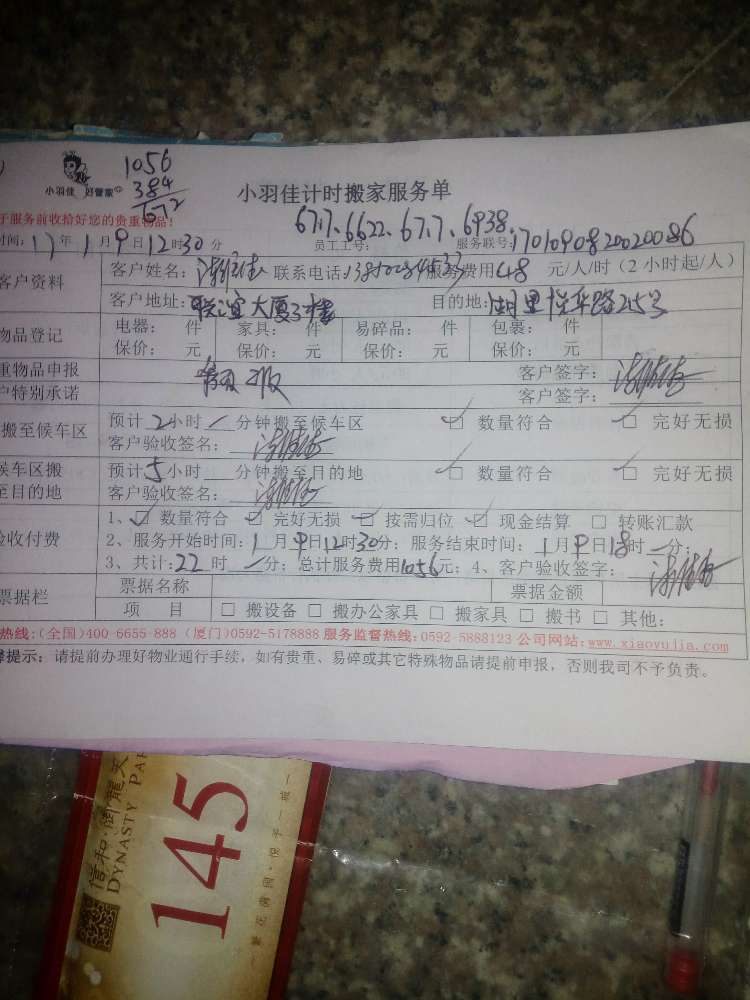 1056
384
672
小羽佳 好管家
小羽佳计时搬家服务单
于服务前收拾好您的贵重物品!
6717、6622、6717、6938
时间: 17年1月9日12时30分 员工工号: 服务联号: 1701090820020086
客户资料 客户姓名: 联系电话: 服务费用48元/人/时(2小时起/人)
客户地址: 联谊大厦3楼 目的地: 湖里悦华路215号
物品登记 电器: 件 家具: 件 易碎品: 件 包裹: 件
保价: 元 保价: 元 保价: 元 保价: 元
重物品申报 客户签字:
户特别承诺 客户签字:
搬至候车区 预计2小时/分钟搬至候车区 ☑ 数量符合 ☑ 完好无损
客户验收签名:
候车区搬至目的地 预计5小时 分钟搬至目的地 ☑ 数量符合 ☑ 完好无损
客户验收签名:
验收付费 1、☑ 数量符合 ☑ 完好无损 ☑ 按需归位 ☑ 现金结算 □ 转账汇款
2、服务开始时间: 1月9日12时30分; 服务结束时间: 1月9日18时/分;
3、共计: 22时/分; 总计服务费用1056元; 4、客户验收签字:
票据栏 票据名称 票据金额
项 目 □ 搬设备 □ 搬办公家具 □ 搬家具 □ 搬书 □ 其他:
热线:(全国)400-6655-888 (厦门)0592-5178898 服务监督热线: 0592-5888123 公司网站: www.xiaoyujia.com
提示: 请提前办理好物业通行手续, 如有贵重、易碎或其它特殊物品请提前申报, 否则我司不予负责。
信和·御龍天
DYNASTY PA
145